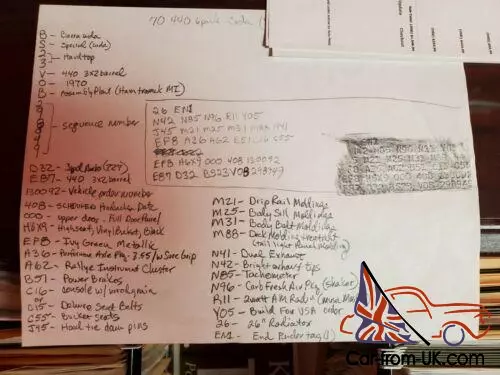 70 440 6pack Cuda
B - Barracuda
S - Special (cuda)
2
3 - Hardtop
V - 440 3x2 barrel
0 - 1970
B - Assembly Plant (Hamtramck MI)
- sequence number
26 EN1
N42 N85 N96 R11 Y05
J45 M21 M25 M31 M88 N41
EF8 A36 A62 B51 C16 C55
EF8 H6X9 000 408 130092
E87 D32 BS23V0B
D32 - Spd Auto (727)
E87 - 440 3x2 barrel
130092 - Vehicle order number
408 - SCHEDULED Production Date
000 - upper door - Full Door Panel
H6X9 - High seat, Vinyl Bucket, Black
EF8 - Ivy Green Metallic
A36 - Performance Axle Pkg - 3.55 w/Sure Grip
A62 - Rallye Instrument Cluster
B51 - Power Brakes
C16 - Console w/ woodgrain
or
C15 - Deluxe Seat Belts
C55 - Bucket seats
J45 - Hood tie down pins
M21 - Drip Rail Moldings
M25 - Body Sill Moldings
M31 - Body Belt Moldings
M88 - Deck Molding Treatment
(tail light Panel Molding)
N41 - Dual Exhaust
N42 - Bright exhaust tips
N85 - Tachometer
N96 - Carb Fresh Air Pkg (shaker)
R11 - 2watt AM Radio
Y05 - Build For USA order
26 - 26" Radiator
EN1 - End
Car-from-UK.com